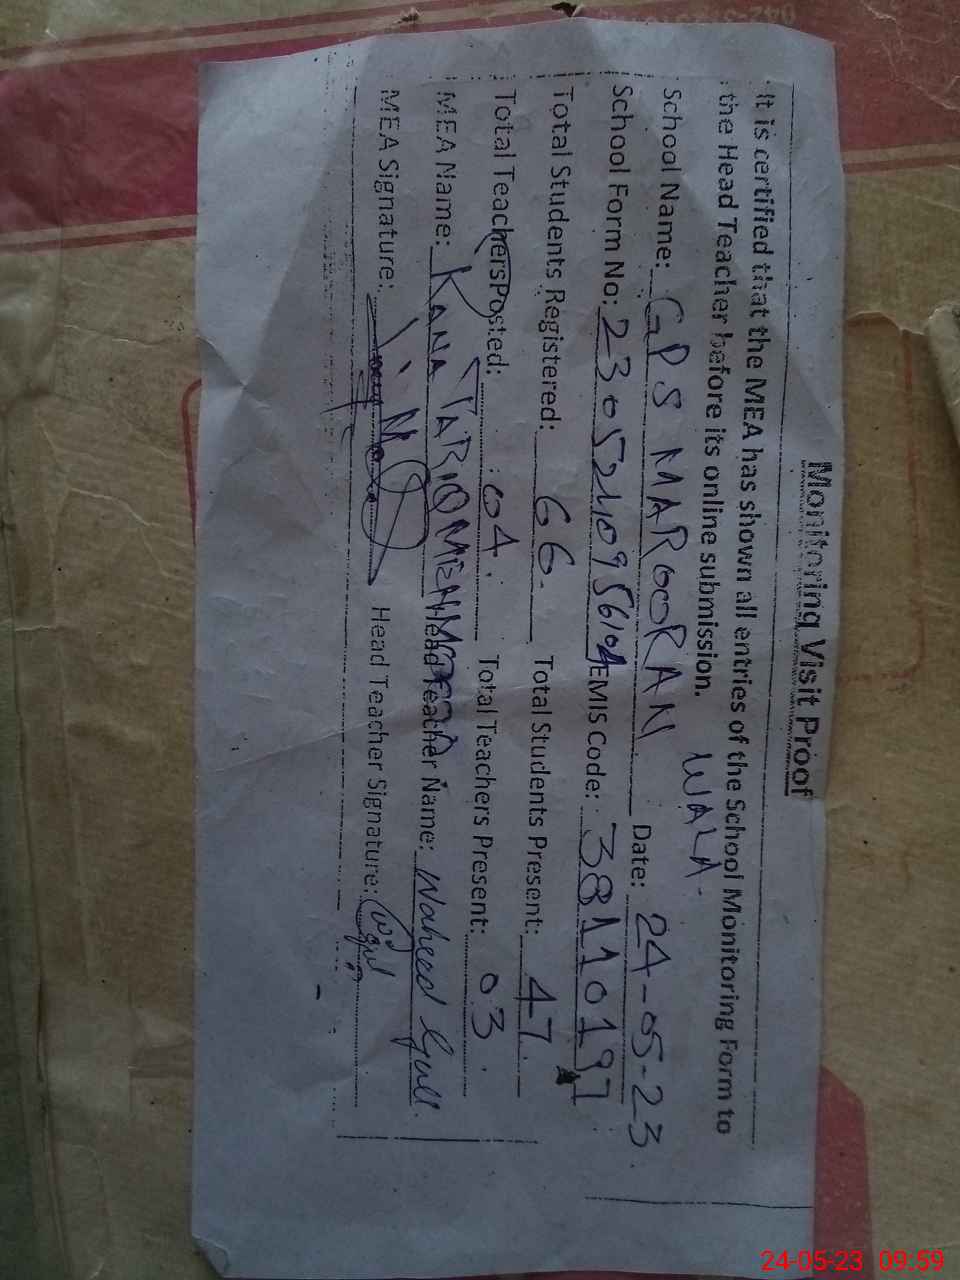 Monitoring Visit Proof
It is certified that the MEA has shown all entries of the School Monitoring Form to
the Head Teacher before its online submission.
WALA.
School Name: GPS MARGOORAN Date: 24-05-23
School Form No: EMIS Code: 38110197
Total Students Registered: 66. Total Students Present: 47.
Total Teachers Posted: 04. Total Teachers Present: 03.
MEA Name: RANA TARIQ MEHMOOD Head Teacher Name: Waheed Gull
MEA Signature: Head Teacher Signature:
24-05-23 09:59